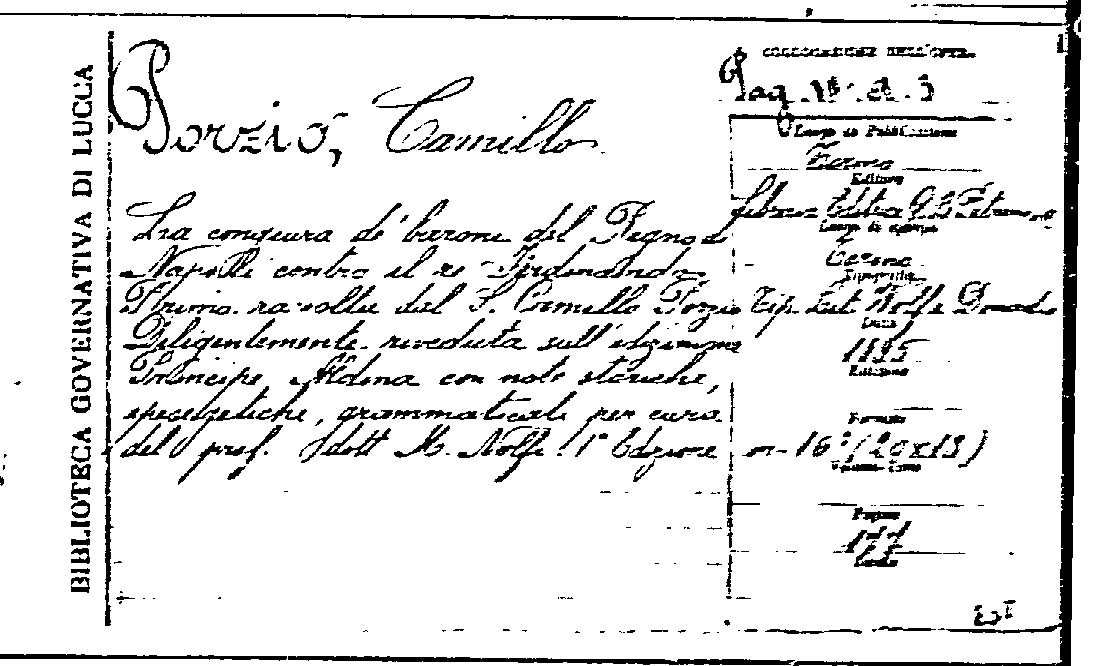 BIBLIOTECA GOVERNATIVA DI LUCCA
Porzio, Camillo
La congiura de' baroni del Regno di
Napoli contro il re Ferdinando
Primo raccolta dal S. Camillo Porzio
Diligentemente riveduta sull'edizione
Principe Aldina con note storiche,
esegetiche, grammaticali per cura
del prof. dott M. Nolfe 1ª Edizione
COLLOCAZIONE DELL'OPERA
Pag.
Luogo di Pubblicazione
Editore
Luogo di stampa
Tipografia
Tip. Nolfe
Data
1895
Edizione
Formato
in-16° (20x13)
Pagine
177